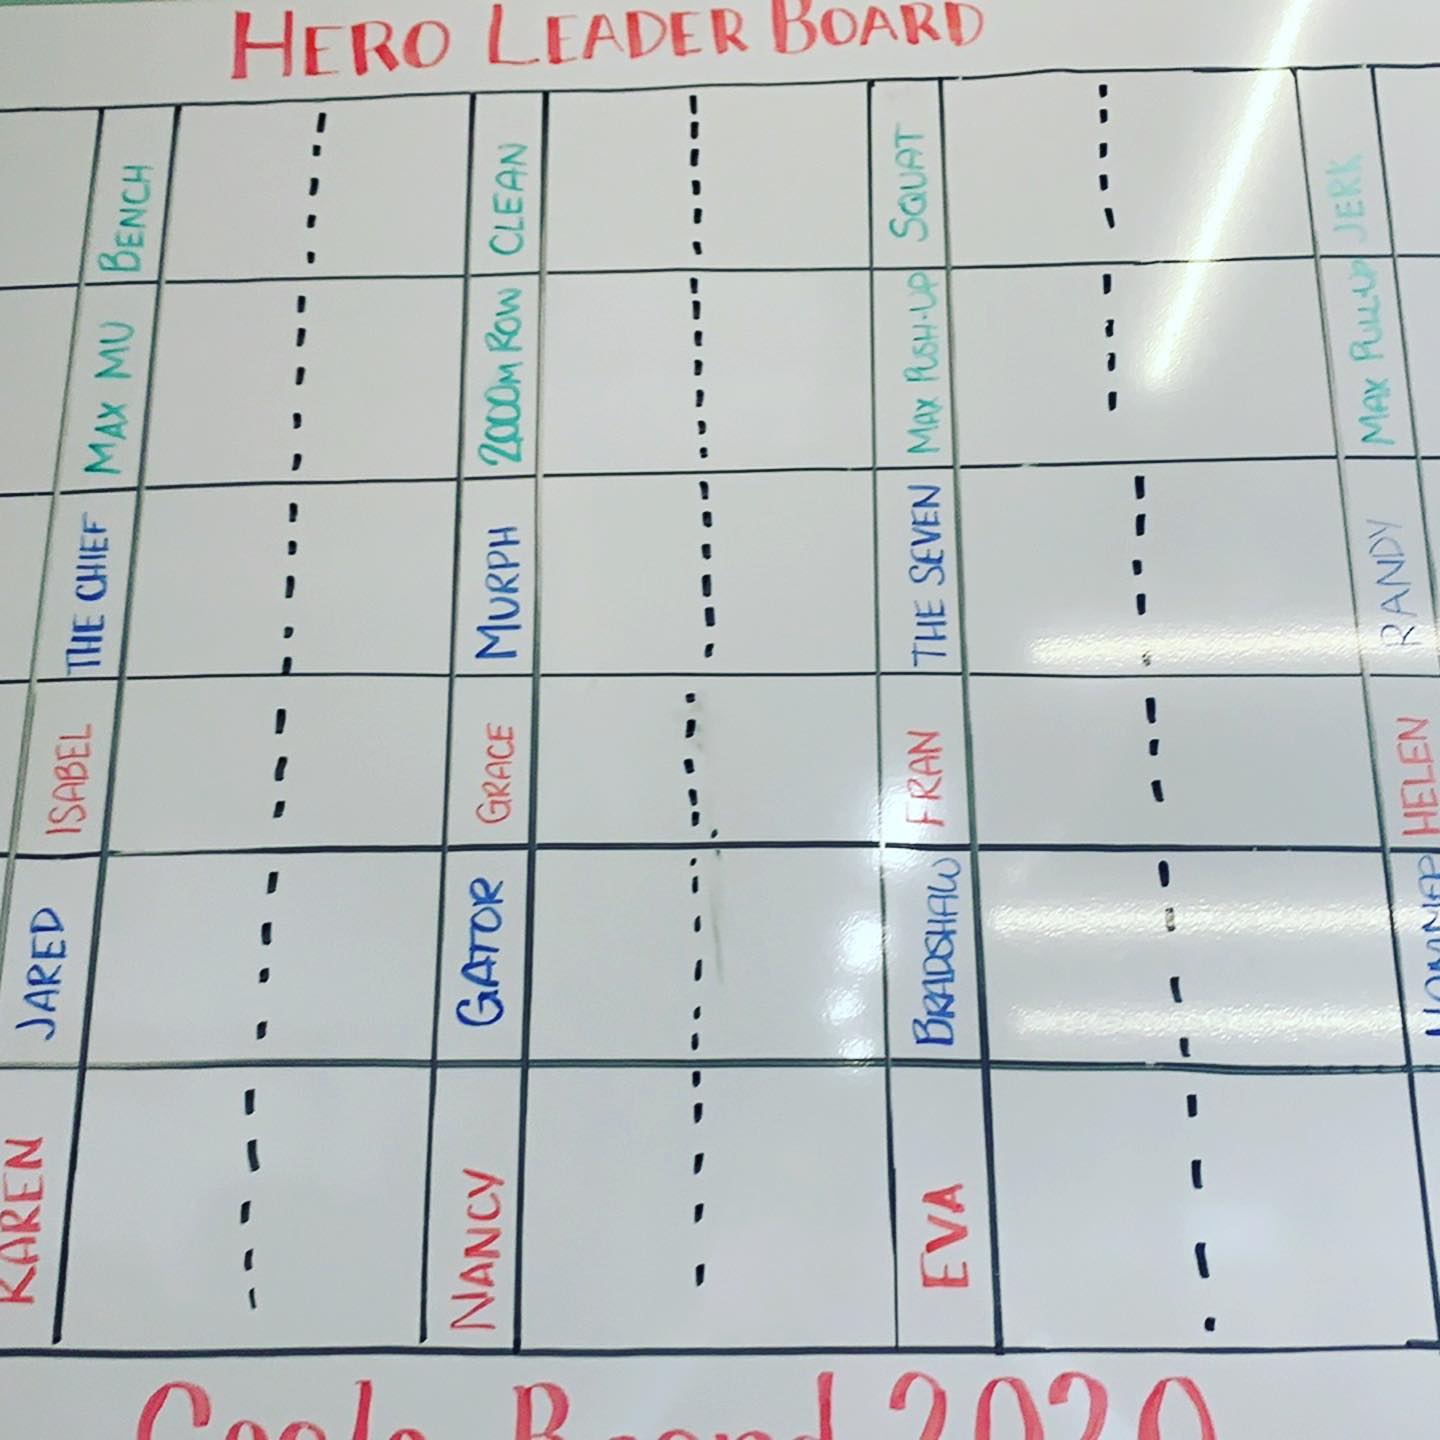 HERO LEADER BOARD
BENCH
CLEAN
SQUAT
JERK
MAX MU
2000M ROW
MAX PUSH-UP
MAX PULL-UP
THE CHIEF
MURPH
THE SEVEN
RANDY
ISABEL
GRACE
FRAN
HELEN
JARED
GATOR
BRADSHAW
KAREN
NANCY
EVA
Board 2020